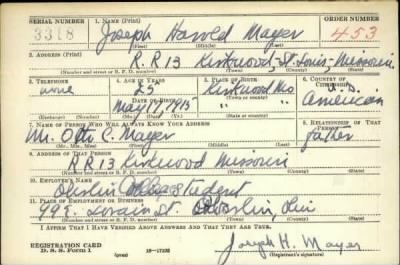 SERIAL NUMBER 1. NAME (Print) ORDER NUMBER
3318 Joseph Harold Mayer 453
(First) (Middle) (Last)
2. ADDRESS (Print)
R.R 13 Kirkwood, St. Louis, Missouri
(Number and street or R. F. D. number) (Town) (County) (State)
3. TELEPHONE 4. AGE IN YEARS 5. PLACE OF BIRTH 6. COUNTRY OF CITIZENSHIP
none 25 Kirkwood Mo U.S.
DATE OF BIRTH (Town or county)
May 17, 1915 " " American
(Exchange) (Number) (Mo.) (Day) (Yr.) (State or country)
7. NAME OF PERSON WHO WILL ALWAYS KNOW YOUR ADDRESS 8. RELATIONSHIP OF THAT PERSON
Mr. Otto C. Mayer father
(Mr., Mrs., Miss) (First) (Middle) (Last)
9. ADDRESS OF THAT PERSON
RR 13 Kirkwood Missouri
(Number and street or R. F. D. number) (Town) (County) (State)
10. EMPLOYER'S NAME
Oberlin College Student
11. PLACE OF EMPLOYMENT OR BUSINESS
99 E. Lorain St. Oberlin, Ohio
(Number and street or R. F. D. number) (Town) (County) (State)
I AFFIRM THAT I HAVE VERIFIED ABOVE ANSWERS AND THAT THEY ARE TRUE.
REGISTRATION CARD Joseph H. Mayer
D. S. S. Form 1 16-17105 (Registrant's signature)